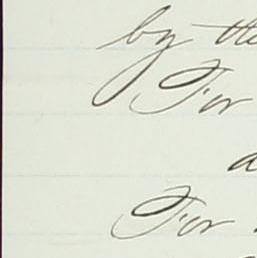 by the
For
a
For